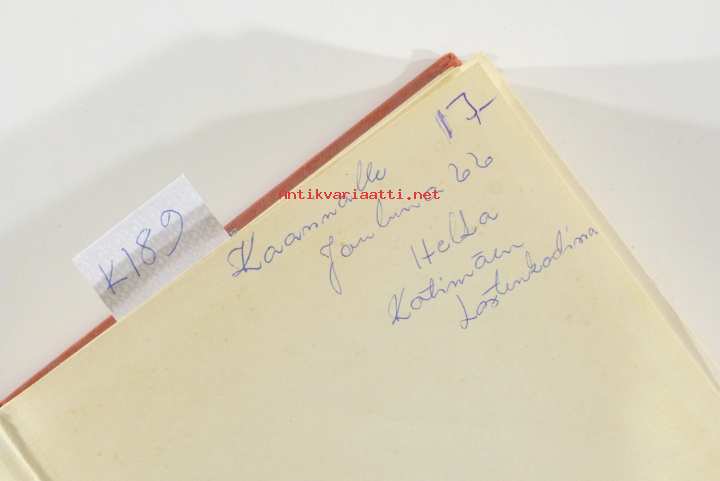 17-
Kaarinalle
Jouluna 66
Helka
Kotimäen
Lastenkodissa
K189
Antikvariaatti.net